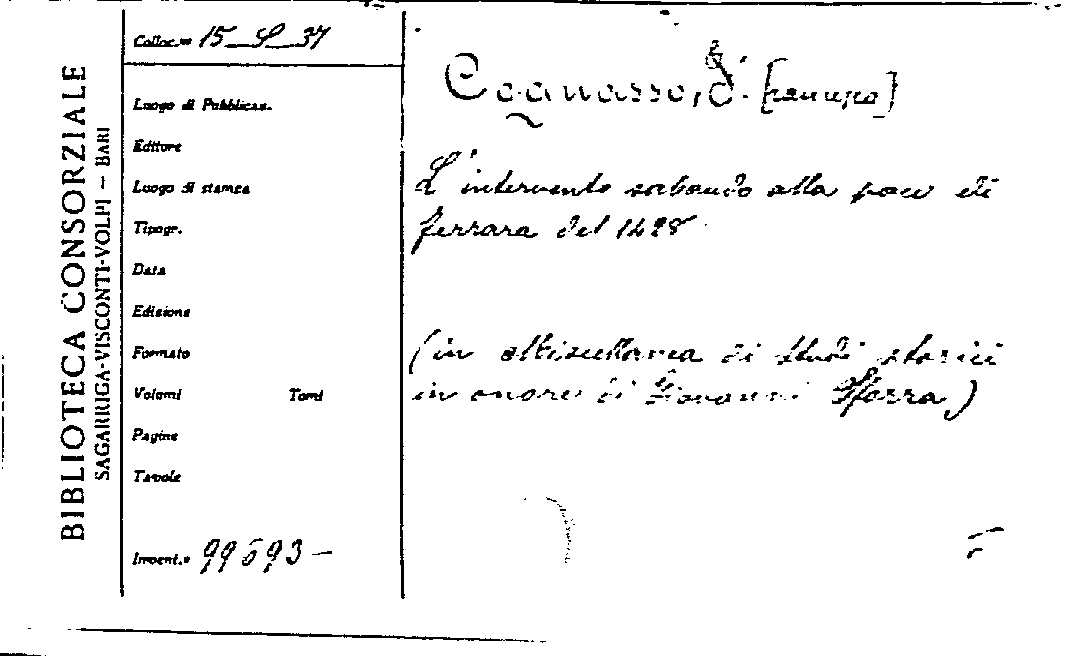 BIBLIOTECA CONSORZIALE
SAGARRIGA-VISCONTI-VOLPI — BARI
Colloc.ne 15_S_37
Luogo di Pubblicaz.
Editore
Luogo di stampa
Tipogr.
Data
Edizione
Formato
Volumi Tomi
Pagine
Tavole
Invent.o 99693-
Cognasso, F.
L'intervento sabaudo alla pace di
Ferrara del 1428
(in Miscellanea di Studi storici
in onore di Giovanni Sforza)